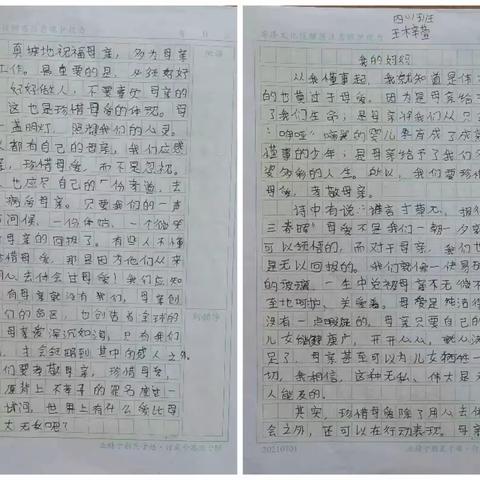 四(1)班
我的妈妈
从我懂事起，我就知道是伟大
的也莫过于母爱，因为是母亲给予
了我们生命；是母亲将我们从只
懂事的少年；是母亲给予了我们
姿多彩的人生。所以，我们要珍惜
母爱，孝敬母亲。
诗中有说：“谁言寸草心，报得
三春晖”母爱不是我们一朝一夕
可以领悟的，而对于母亲，我们也
是无以回报的。我们就像一块易碎
的玻璃，一生中总被母亲无微不
至地呵护、关爱着。母爱是纯洁得
没有一点瑕疵的，母亲只要自己的
儿女健健康康，开开心心，就心满
足了，母亲甚至可以为儿女牺牲一
切，我相信，这种无私、伟大是无
人能及的。
其实，珍惜母爱除了用心去体
会之外，还可以在行动表现。母亲
20210701
真城地祝福母亲，多为母亲
工作。最重要的是，必须好好
好好做人，不要辜负母亲的
这也是珍惜母爱的体现。母
一盏明灯，照亮我们的心灵。
都有自己的母亲，我们应感
珍惜母爱，而不是忽视。
人也应尽自己的一份孝道，去
病母亲。只要我们的一声
问候，一份体贴，一个微笑
母亲的回报了。有些人不懂
惜母爱，那是因为他们从来
用心去体会过母爱！我们应知
有母亲就没有我们，母亲创
们的身体，也创造者全球的
母亲爱深沉如海，只有我们
才会领略到其中的感人之处。
们要孝敬母亲，珍惜母爱，
试问，世界上有什么会比母
大无私呢？